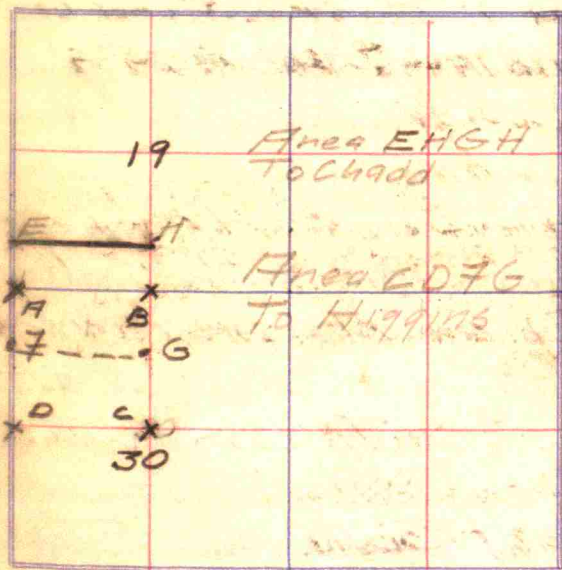 19
Area EHGH
To Chadd
E H
Area CD7G
To Higgins
A B
7 G
D C
30